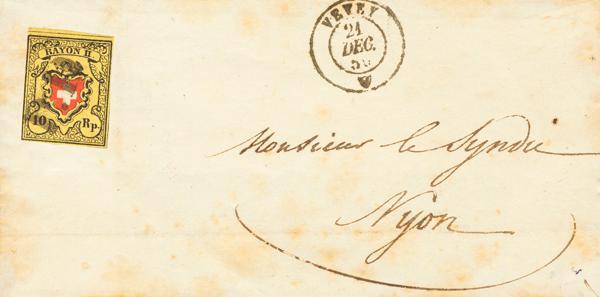 RAYON II
10 Rp.
VEVEY
21
DEC.
50
Monsieur le Syndic
Nÿon